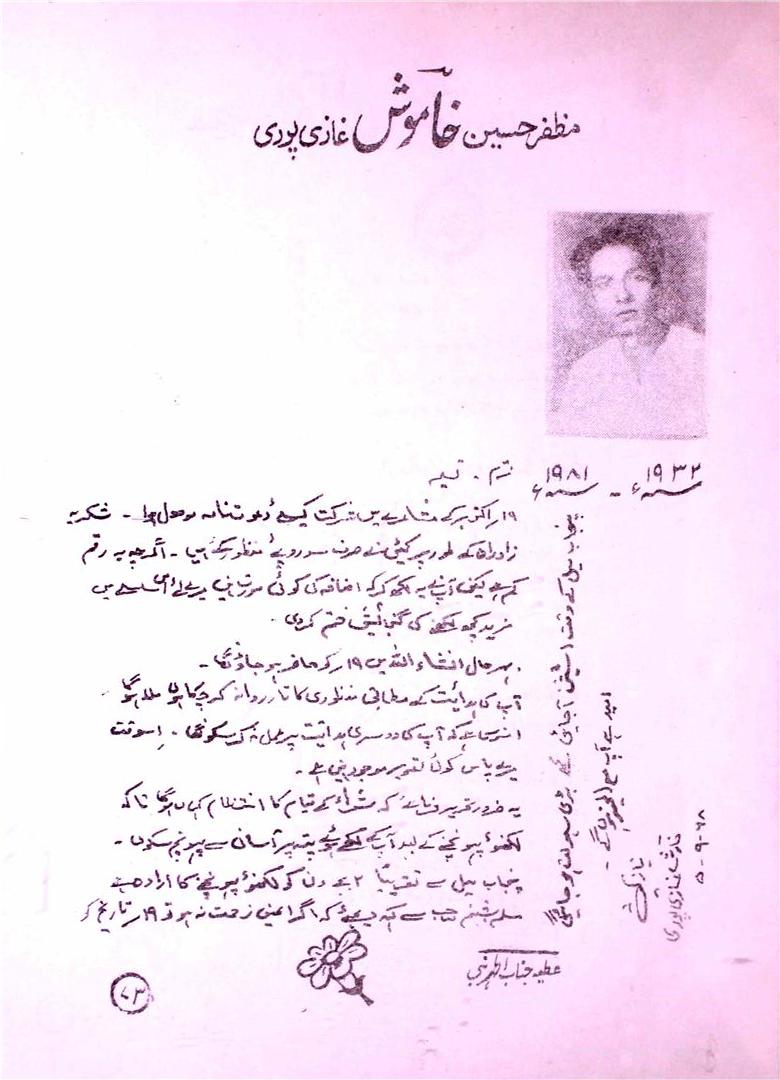 مظفر حسین خاموش غازی پوری
۱۹۳۲ء - ۱۹۸۱ء
تسلیم
۱۹ اکتوبر کے مشاعرے میں شرکت کیلئے دعوتنامہ موصول ہوا - شکریہ
زادراہ کے طور پر کمیٹی نے صرف سو روپے منظور کئے ہیں - اگرچہ یہ رقم
کم ہے لیکن آپنے یہ لکھ کر کہ اضافہ کی کوئی صورت نہیں میرے لئے اس سلسلے میں
مزید کچھ لکھنے کی گنجائش ختم کر دی -
بہر حال انشاء اللہ میں ۱۹ر کو حاضر ہو جاؤنگا -
آپ کی ہدائیت کے مطابق منظوری کا تار روانہ کر چکا ہوں ملا ہوگا
افسوس ہے کہ آپ کی دوسری ہدائیت پر عمل نہ کر سکونگا - اسوقت
میرے پاس کوئی تصویر موجود نہیں ہے -
یہ ضرور تحریر فرمائے کہ شعراء کے قیام کا انتظام کہاں ہوگا تاکہ
لکھنؤ پہونچنے کے بعد آپ کے لکھے ہوئے پتہ پر آسانی سے پہونچ سکوں -
پنجاب میل سے تقریباً ۲ بجے دن کو لکھنؤ پہونچنے کا ارادہ ہے
مسلم شبنم صاحب سے کہہ دیجئے کہ اگر انہیں زحمت نہ ہو تو ۱۹ر تاریخ کو
پنجاب میل کے وقت اسٹیشن آجائیں گے بڑی سہولت ہو جائیگی
امید ہے آپ مع الخیر ہوں گے -
نیاز کیش
خاموش غازی پوری
۵-۹-۶۸
عطیہ جناب اظہر نبی
۷۳